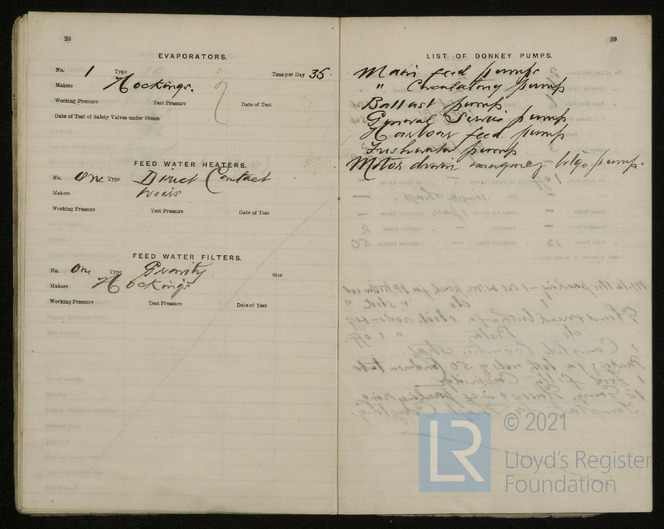 28
EVAPORATORS.
No. 1 Type Tons per Day 35
Makers Hockings.
Working Pressure Test Pressure Date of Test
Date of Test of Safety Valves under Steam
FEED WATER HEATERS.
No. One Type Direct Contact
Makers Weirs
Working Pressure Test Pressure Date of Test
FEED WATER FILTERS.
No. One Type Gravity Size
Makers Hockings
Working Pressure Test Pressure Date of Test
29
LIST OF DONKEY PUMPS.
Main feed pumps
" Circulating pump
Ballast pump
General Service pump
Harbour feed pump
Freshwater pump
Motor driven emergency bilge pump.
© 2021
LR Lloyd's Register
Foundation